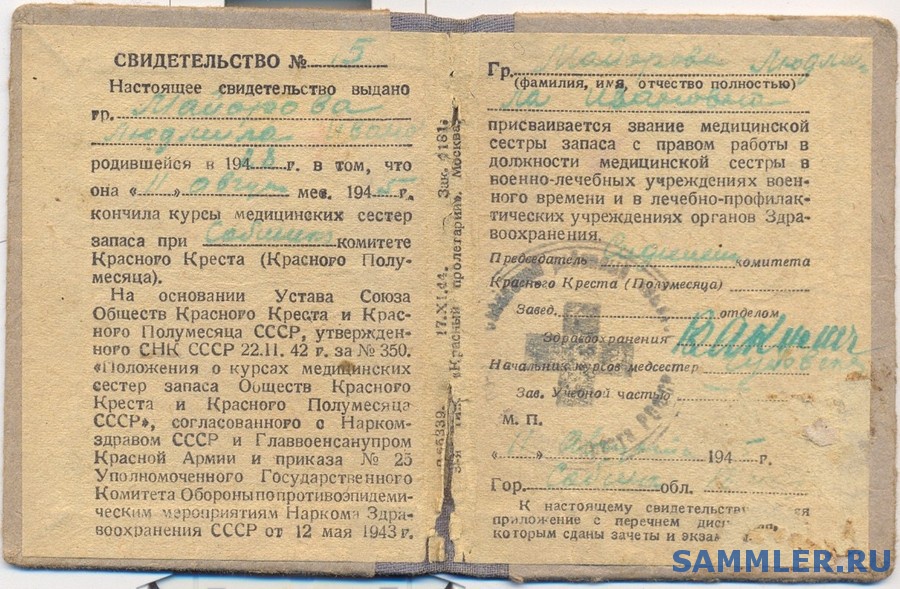 СВИДЕТЕЛЬСТВО № 5
Настоящее свидетельство выдано
гр. Майорова
Людмила Ивано
родившейся в 194 г. в том, что
она «11» август мес. 1945 г.
кончила курсы медицинских сестер
запаса при комитете
Красного Креста (Красного Полу-
месяца).
На основании Устава Союза
Обществ Красного Креста и Крас-
ного Полумесяца СССР, утвержден-
ного СНК СССР 22.11. 42 г. за № 350.
«Положения о курсах медицинских
сестер запаса Обществ Красного
Креста и Красного Полумесяца
СССР», согласованного с Нарком-
здравом СССР и Главвоенсанупром
Красной Армии и приказа № 25
Уполномоченного Государственного
Комитета Обороны по противоэпидеми-
ческим мероприятиям Наркома Здра-
воохранения СССР от 12 мая 1943 г.
17.XI.44. Зак.
«Красный пролетарий». Москва,
Гр. Майорова Людми-
(фамилия, имя, отчество полностью)
ла Ивановна
присваивается звание медицинской
сестры запаса с правом работы в
должности медицинской сестры в
военно-лечебных учреждениях воен-
ного времени и в лечебно-профилак-
тических учреждениях органов Здра-
воохранения.
Председатель комитета
Красного Креста (Полумесяца)
Завед. отделом
Здравоохранения
Начальник курсов медсестер
Зав. Учебной частью
М. П.
«11» 1945 г.
Гор. обл.
К настоящему свидетельств
приложение с перечнем дисц
которым сданы зачеты и экза
SAMMLER.RU